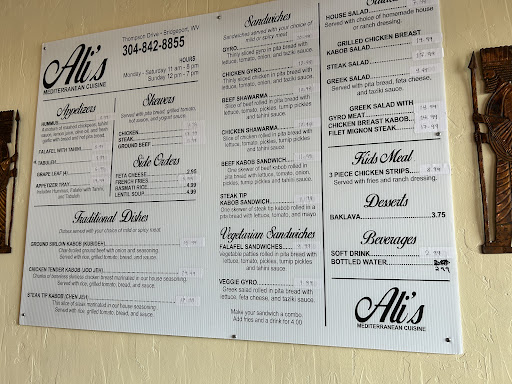 Ali's
MEDITERRANEAN CUISINE
Thompson Drive - Bridgeport, WV
304-842-8855
HOURS
Monday - Saturday 11 am - 8 pm
Sunday 12 pm - 7 pm
Appetizers
HUMMUS
FALAFEL WITH TAHINI
TABOULEH
GRAPE LEAF (4)
APPETIZER TRAY
Skewers
Served with pita bread, grilled tomato,
hot sauce, and yogurt sauce
CHICKEN
STEAK
GROUND BEEF
Side Orders
FETA CHEESE 2.95
FRENCH FRIES
BASMATI RICE 4.99
LENTIL SOUP 4.99
Traditional Dishes
Dishes served with your choice of mild or spicy meat
GROUND SIRLOIN KABOB (KUBIDEH)
Char broiled ground beef with onion and seasoning.
Served with rice, grilled tomato, bread, and sauce.
CHICKEN TENDER KABOB (JOOJEH)
Chunks of boneless delicious chicken breast marinated in our house seasoning.
Served with rice, grilled tomato, bread, and sauce.
STEAK TIP KABOB (CHENJEH)
Thin slices of steak marinated in our house seasoning.
Served with rice, grilled tomato, bread, and sauce.
Sandwiches
Sandwiches served with your choice of
mild or spicy meat
GYRO
Thinly sliced gyro in pita bread with
lettuce, tomato, onion, and taziki sauce.
CHICKEN GYRO
Thinly sliced chicken in pita bread with
lettuce, tomato, onion, and taziki sauce.
BEEF SHAWARMA
Slice of beef rolled in pita bread with
lettuce, tomato, onion, pickles, turnip
pickles and tahini sauce.
CHICKEN SHAWARMA
Slice of chicken breast rolled in pita
bread with lettuce, tomato, onion,
pickles, turnip pickles and tahini sauce.
BEEF KABOB SANDWICH
One skewer of beef kabob rolled in
pita bread with lettuce, tomato, onion,
pickles, turnip pickles and tahini sauce.
STEAK TIP
KABOB SANDWICH
One skewer of steak tip kabob rolled in a
pita bread with lettuce, tomato, and mayo.
Vegetarian Sandwiches
FALAFEL SANDWICHES
Vegetable patties rolled in pita bread with
lettuce, tomato, pickles, turnip pickles
and tahini sauce
VEGGIE GYRO
Greek salad rolled in pita bread with
lettuce, feta cheese, and taziki sauce.
Make your sandwich a combo.
Add fries and a drink for 4.00
HOUSE SALAD
Served with choice of homemade house
or ranch dressing.
GRILLED CHICKEN BREAST
KABOB SALAD
STEAK SALAD
GREEK SALAD
Served with pita bread, feta cheese,
and taziki sauce.
GREEK SALAD WITH
GYRO MEAT
CHICKEN BREAST KABOB
FILET MIGNON STEAK
Kids Meal
3 PIECE CHICKEN STRIPS
Served with fries and ranch dressing.
Desserts
BAKLAVA 3.75
Beverages
SOFT DRINK 2.99
BOTTLED WATER
2.99
Ali's
MEDITERRANEAN CUISINE